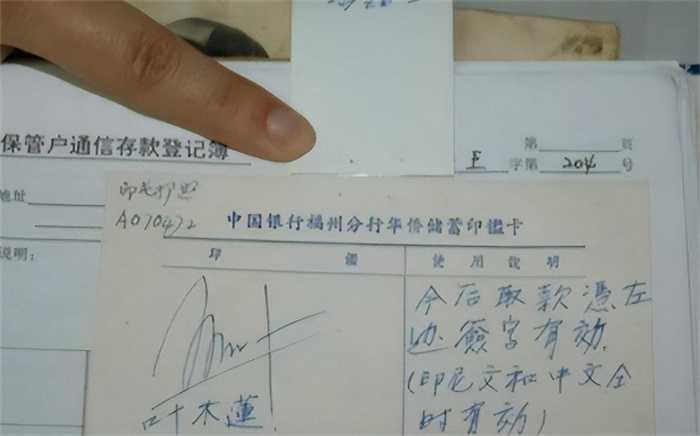 保管户通信存款登记簿
第 页
E 字第 204 号
地址
说明:
印尼护照
A070472
中国银行福州分行华侨储蓄印鑑卡
印 鑑
使用说明
今后取款憑左
边簽字有効.
(印尼文和中文全
时有効)
叶木蓮